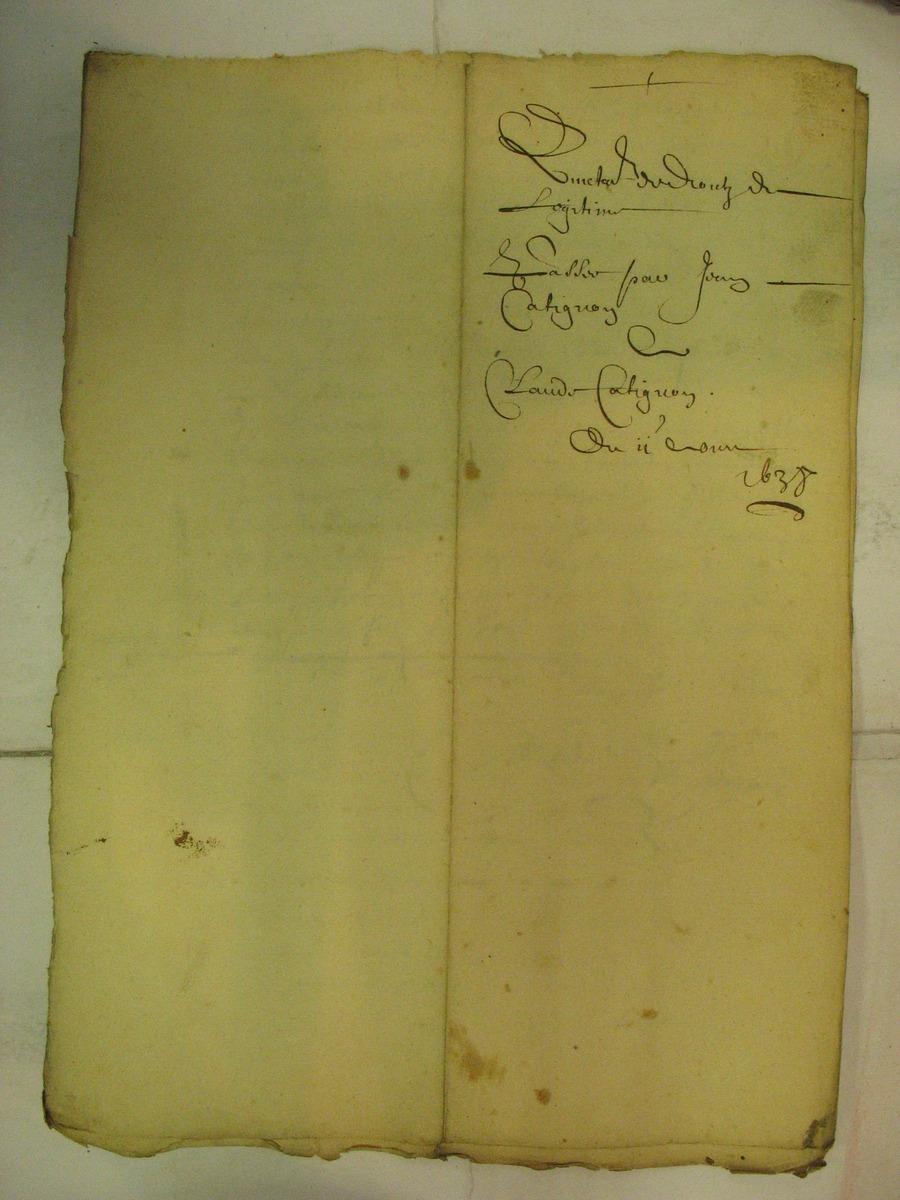 Quictance des droictz de
Legitime
Passée par Jean
Catignon
A
Claude Catignon.
Du ii
1638